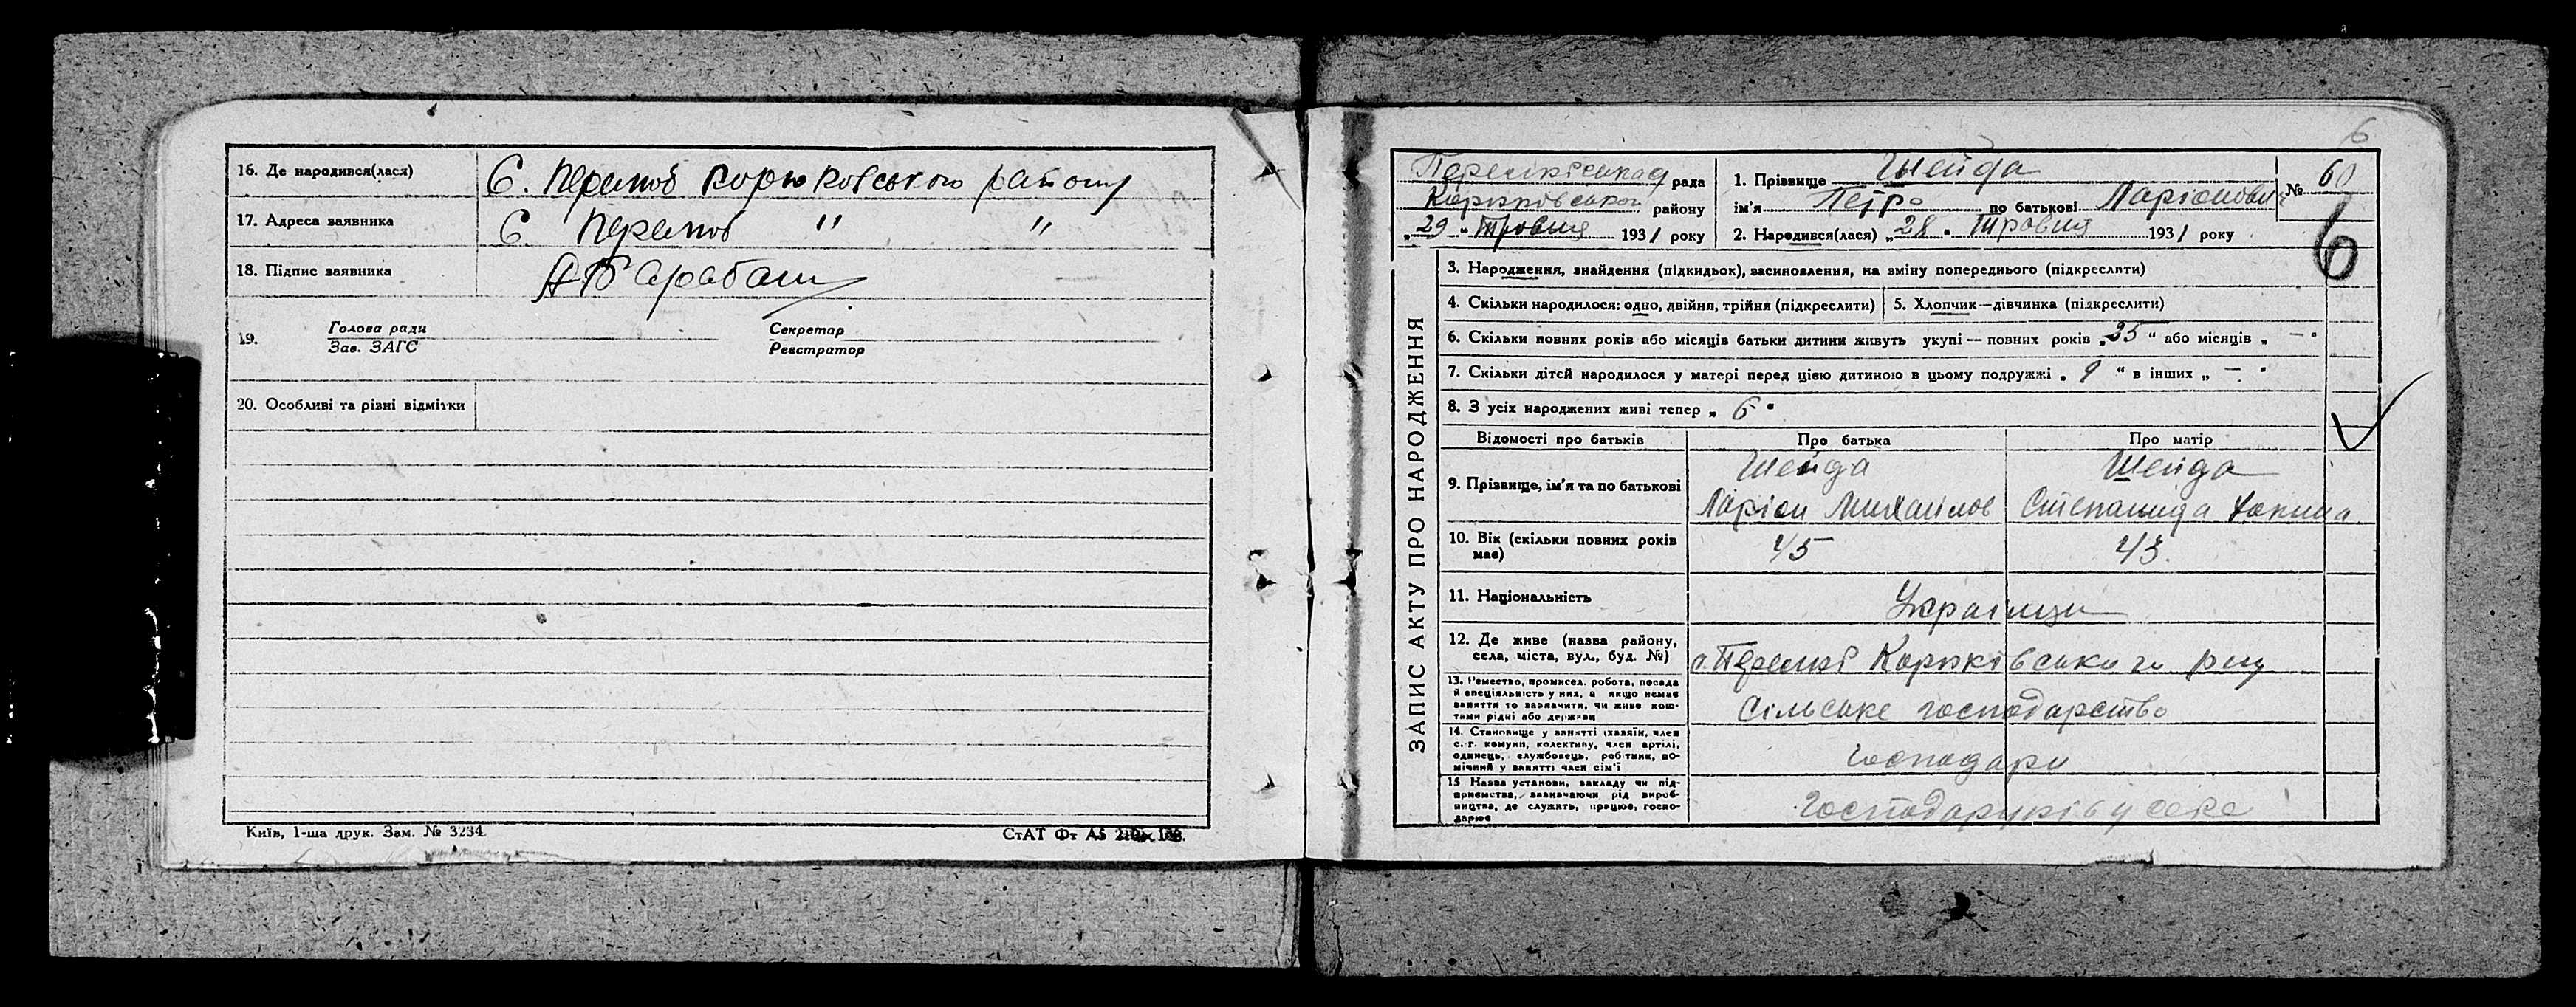 16. Де народився(лася) С. Перелюб Корюковського району
17. Адреса заявника С. Перелюб " "
18. Підпис заявника А Барабаш
19. Голова ради Секретар
Зав. ЗАГС Реєстратор
20. Особливі та різні відмітки
Київ, 1-ша друк. Зам. № 3234.
СтАТ Фт А5
6
рада
Корюківського району
„29 " Травня 1931 року
1. Прізвище Шейда
ім'я Петро по батькові Ларіонович
2. Народився(лася) „28 " Травня 1931 року
№ 60
6
ЗАПИС АКТУ ПРО НАРОДЖЕННЯ
3. Народження, знайдення (підкидьок), засиновлення, на зміну попереднього (підкреслити)
4. Скільки народилося: одно, двійня, трійня (підкреслити)
5. Хлопчик—дівчинка (підкреслити)
6. Скільки повних років або місяців батьки дитини живуть укупі — повних років „25 " або місяців „ — "
7. Скільки дітей народилося у матері перед цією дитиною в цьому подружжі „ 9 " в інших „ — "
8. З усіх народжених живі тепер „ 6 "
Відомості про батьків
Про батька
Про матір
9. Прізвище, ім'я та по батькові
Шейда
Ларіон Михайлов
Шейда
Степанида
10. Вік (скільки повних років має)
45
43.
11. Національність
Українци
12. Де живе (назва району, села, міста, вул., буд. №)
с. Перелюб Корюківського р-ну
13. Ремество, промисел, робота, посада й спеціяльність у них, а якщо немає заняття то зазначити, чи живе коштами рідні або держави
Сільське господарство
14. Становище у занятті (хазяїн, член с.-г. комуни, колективу, член артілі, одинець, службовець, робітник, помічний у занятті член сім'ї
господари
15 Назва установи, закладу чи підприємства, зазначаючи рід виробництва, де служить, працює, господарює
у себе